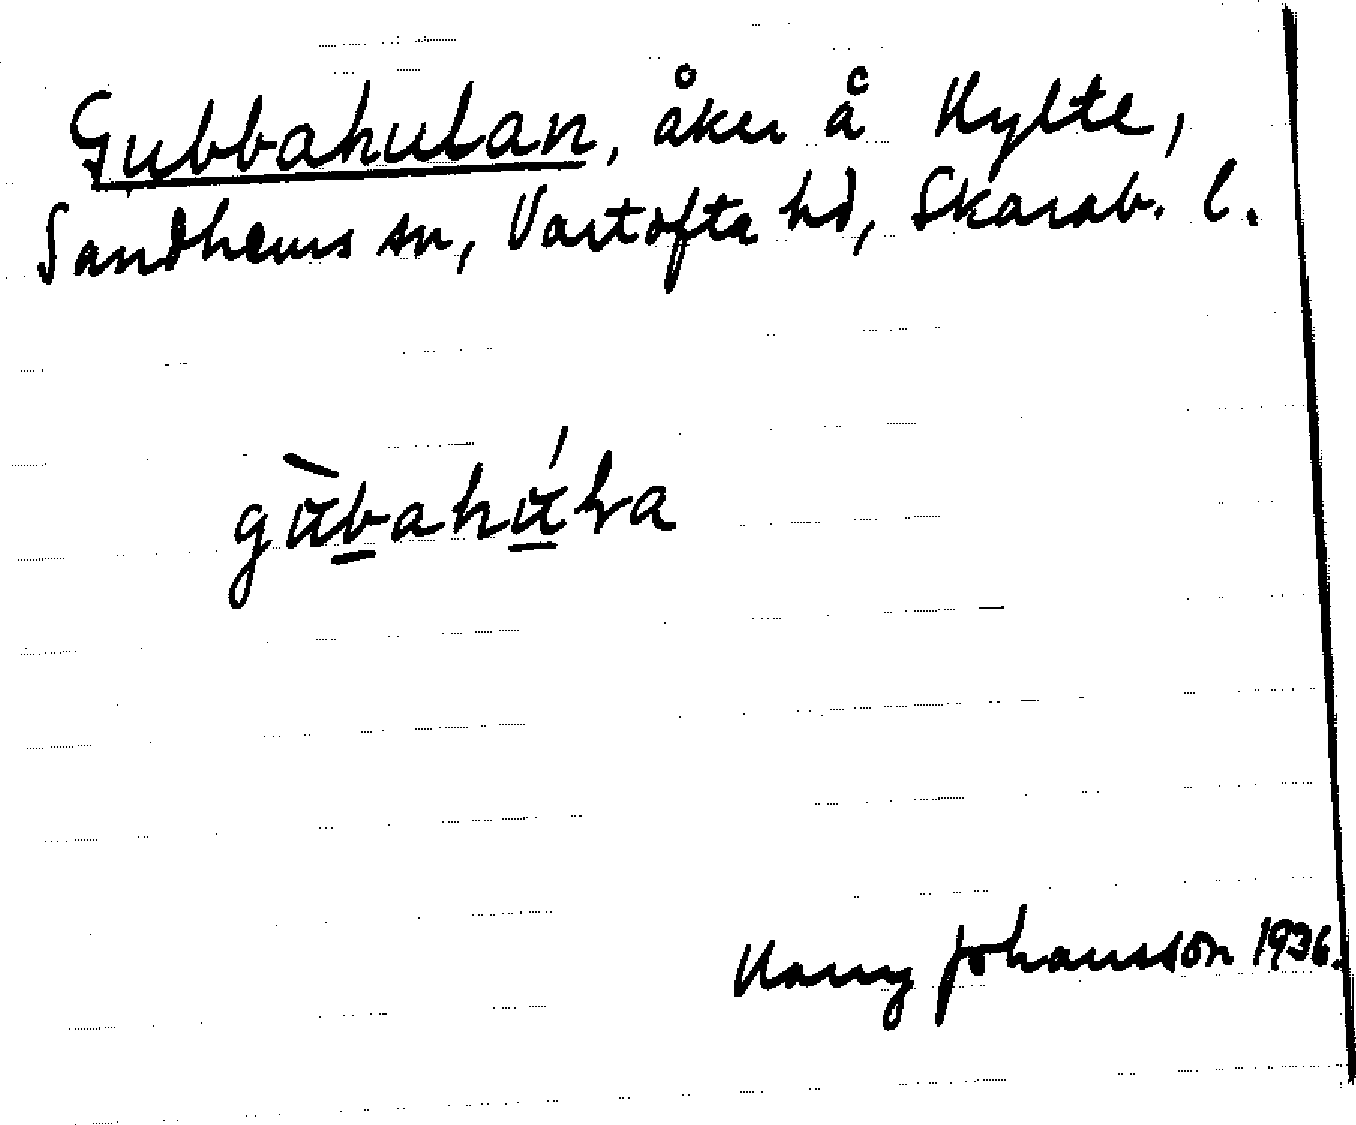 Gubbahulan, åker å Hylte,
Sandhems sn, Vartofta hd, Skarab. l.
Harry Johansson 1936.